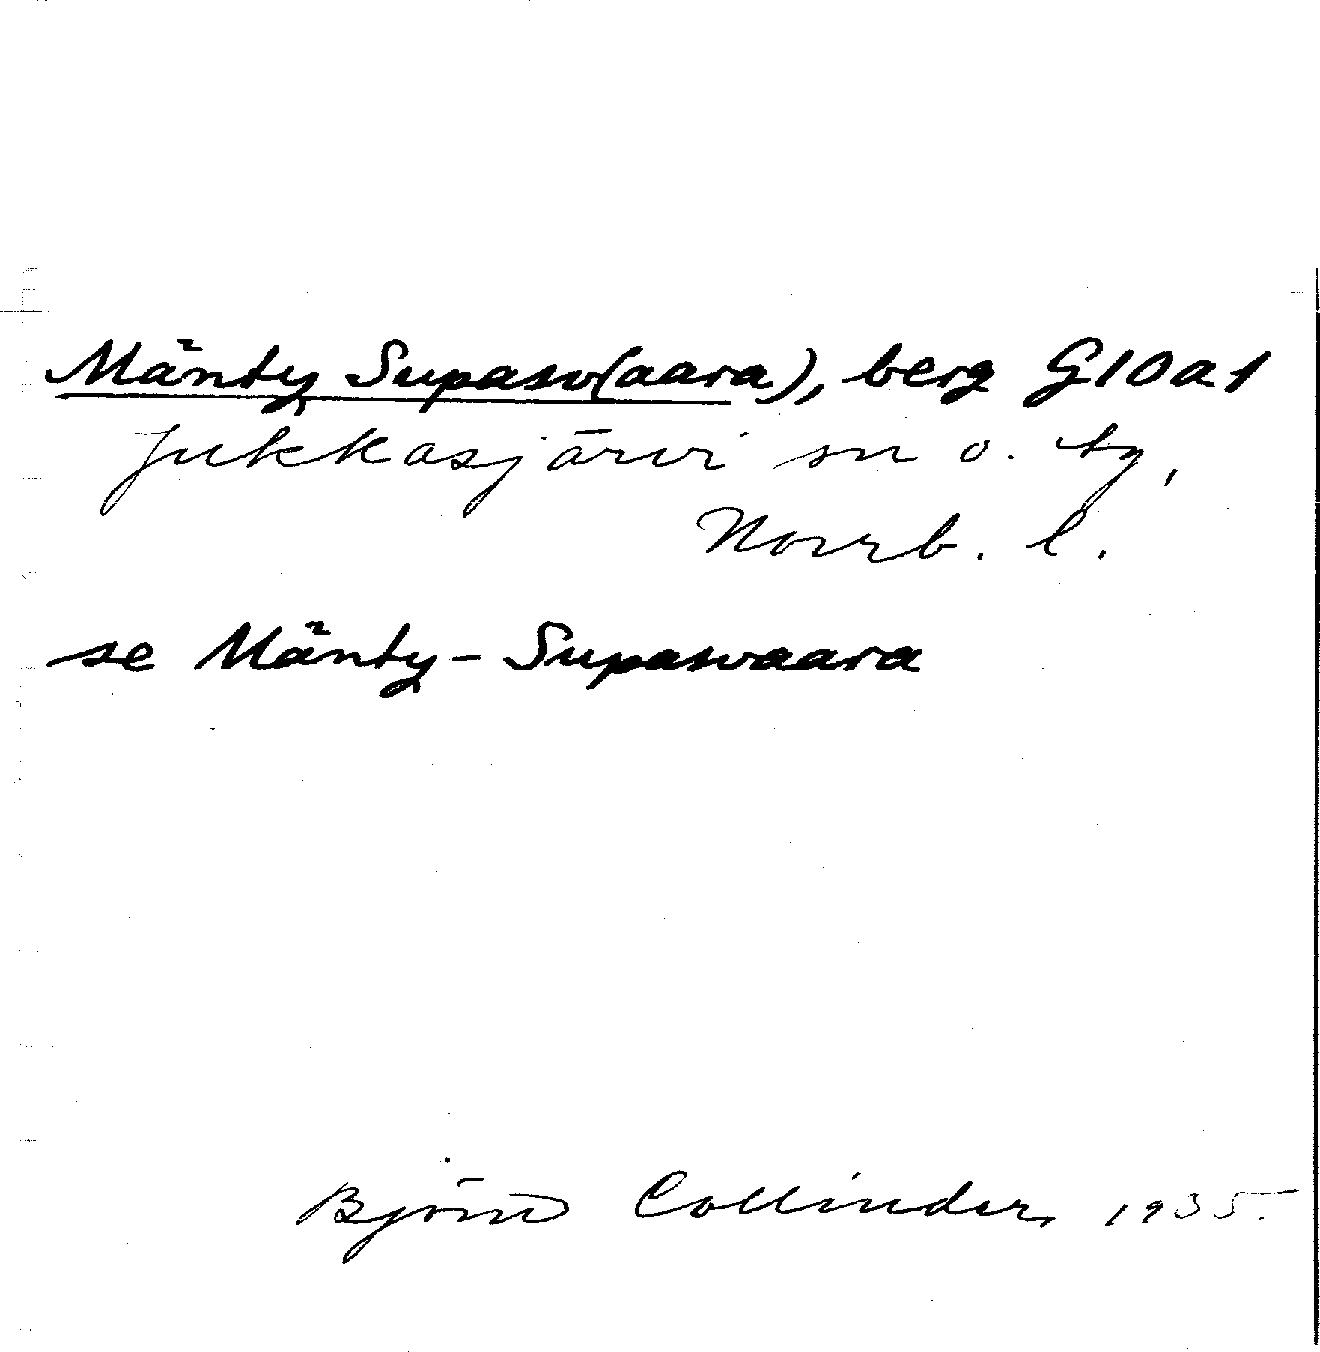 Mänty Supasv(aara), berg G10a1
Jukkasjärvi sn o. tg,
Norrb. l.
se Mänty-Supasvaara
Björn Collinder, 1935.